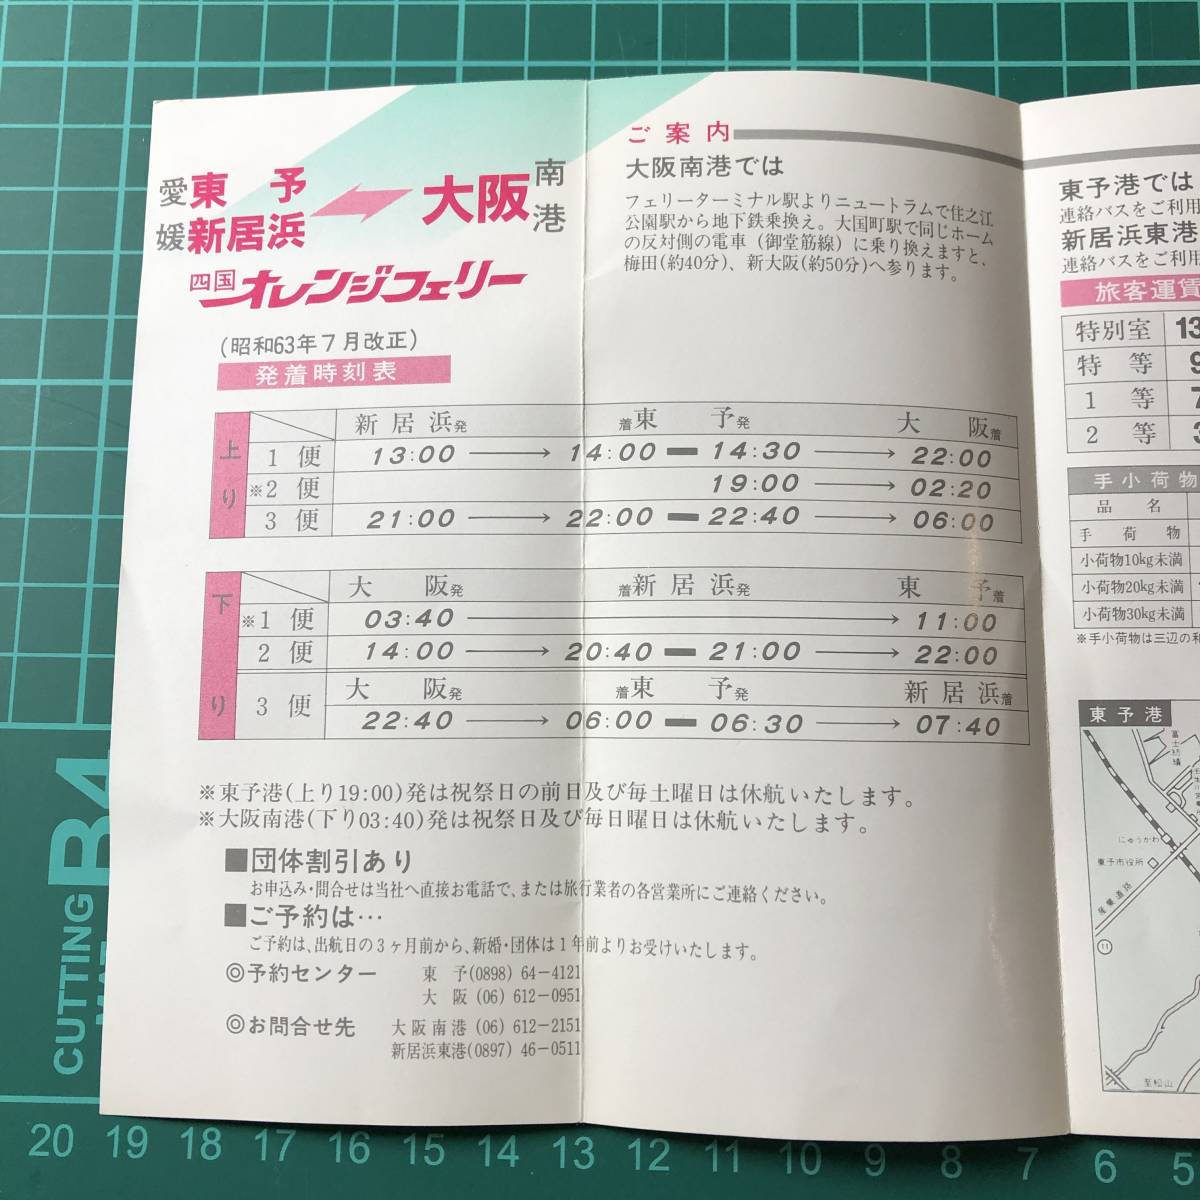 愛媛 東予 新居浜 ⇔ 大阪南港
四国オレンジフェリー
(昭和63年7月改正)
発着時刻表
上り
新居浜発 着東予発 大阪着
1便 13:00 → 14:00 ━ 14:30 → 22:00
※2便 19:00 → 02:20
3便 21:00 → 22:00 ━ 22:40 → 06:00
下り
大阪発 着新居浜発 東予着
※1便 03:40 → 11:00
2便 14:00 → 20:40 ━ 21:00 → 22:00
大阪発 着東予発 新居浜着
3便 22:40 → 06:00 ━ 06:30 → 07:40
※東予港(上り19:00)発は祝祭日の前日及び毎土曜日は休航いたします。
※大阪南港(下り03:40)発は祝祭日及び毎日曜日は休航いたします。
■団体割引あり
お申込み・問合せは当社へ直接お電話で、または旅行業者の各営業所にご連絡ください。
■ご予約は…
ご予約は、出航日の3ヶ月前から、新婚・団体は1年前よりお受けいたします。
◎予約センター 東予(0898)64-4121
大阪(06)612-0951
◎お問合せ先 大阪南港(06)612-2151
新居浜東港(0897)46-0511
ご案内
大阪南港では
フェリーターミナル駅よりニュートラムで住之江
公園駅から地下鉄乗換え。大国町駅で同じホーム
の反対側の電車(御堂筋線)に乗り換えますと、
梅田(約40分)、新大阪(約50分)へ参ります。
東予港では
連絡バスをご利用
新居浜東港
連絡バスをご利用
旅客運賃
特別室 13
特等 9
1等 7
2等 3
手小荷物
品名
手荷物
小荷物10kg未満
小荷物20kg未満
小荷物30kg未満
※手小荷物は三辺の和
東予港
富士紡績
にゅうがわ
東予市役所
産業道路
11
至松山
CUTTING
B4
20 19 18 17 16 15 14 13 12 11 10 9 8 7 6 5